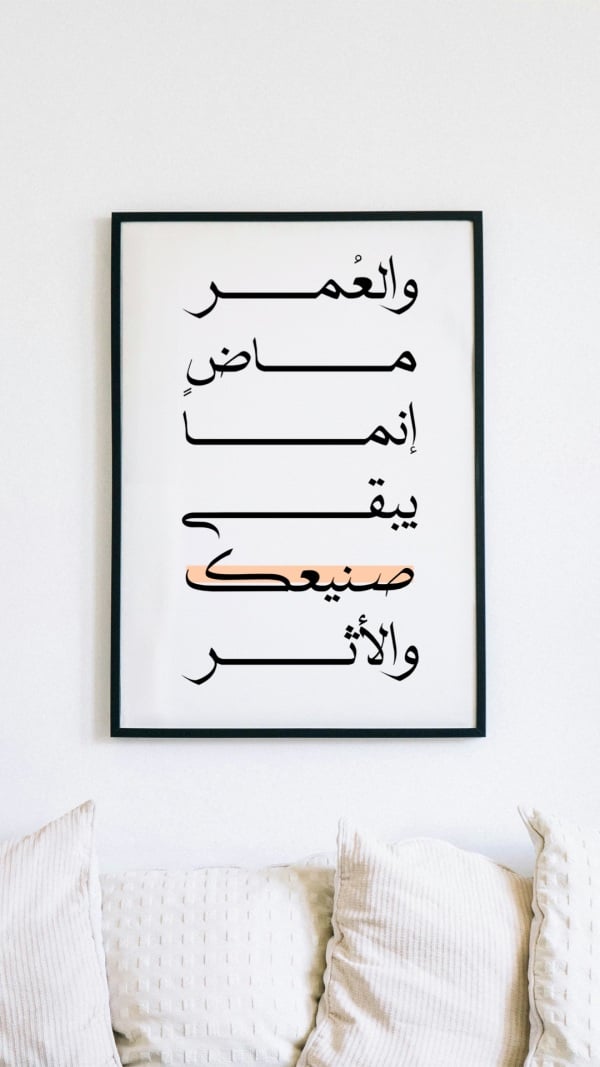 والعُمر
ماضٍ
إنما
يبقى
صنيعك
والأثر